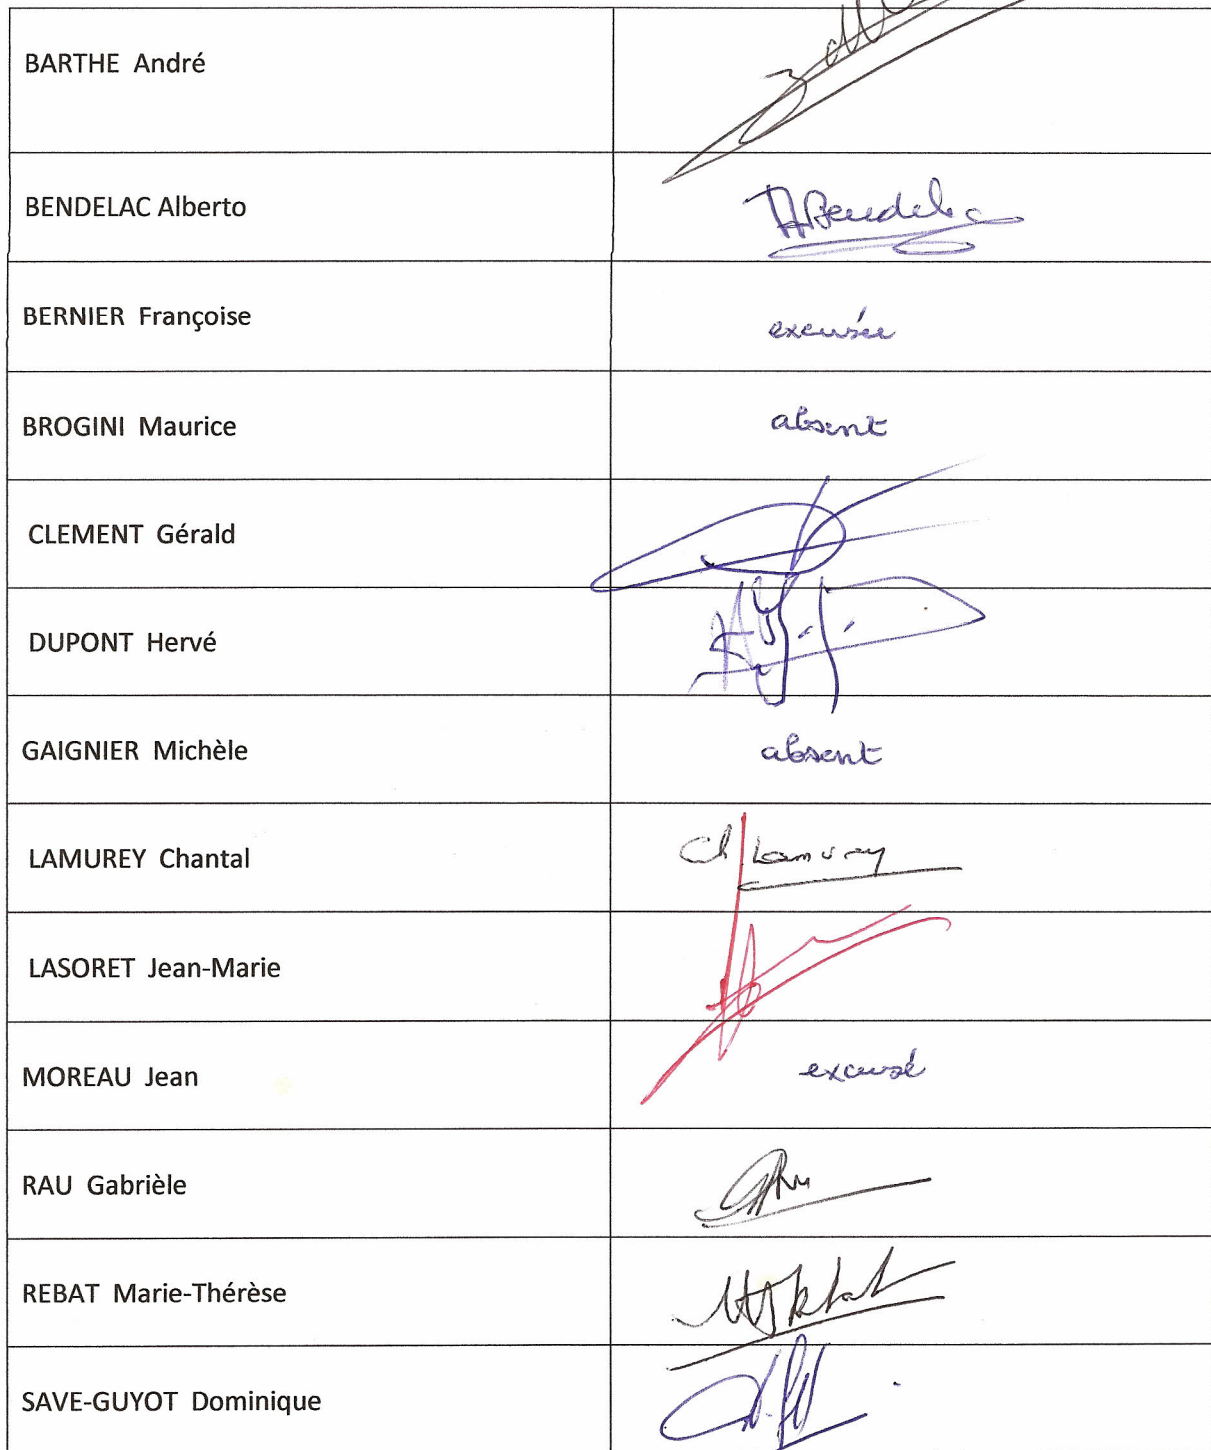 BARTHE André
BENDELAC Alberto
ABendelac
BERNIER Françoise
excusée
BROGINI Maurice
absent
CLEMENT Gérald
DUPONT Hervé
GAIGNIER Michèle
absent
LAMUREY Chantal
Ch Lamurey
LASORET Jean-Marie
MOREAU Jean
excusé
RAU Gabrièle
REBAT Marie-Thérèse
SAVE-GUYOT Dominique